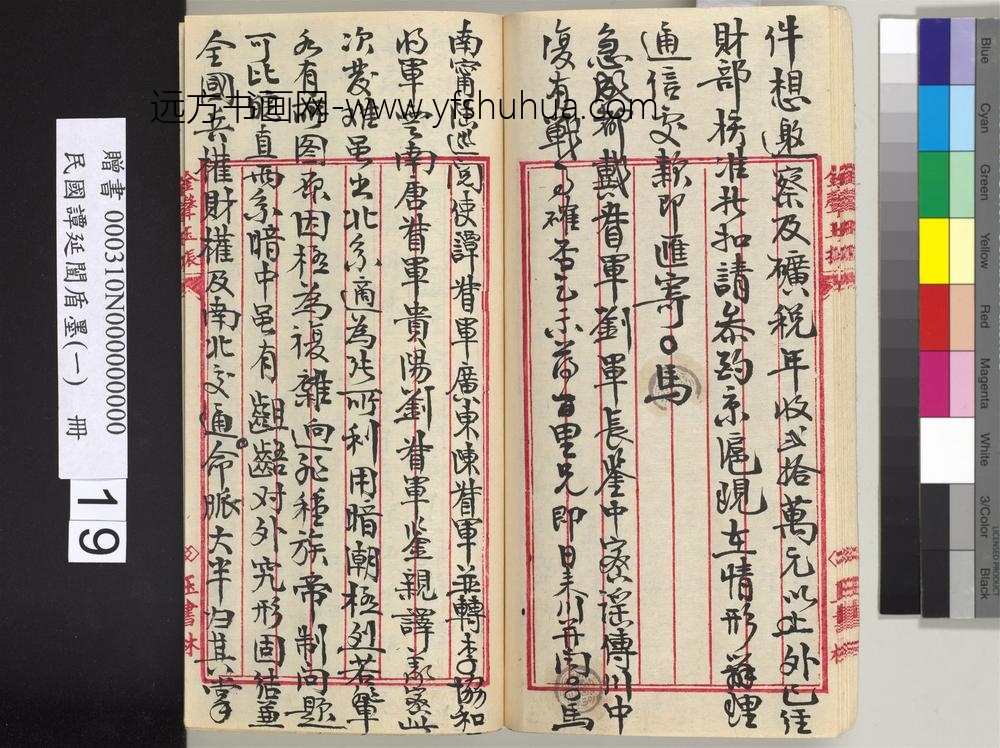 件想邀察及礦稅年收弍拾萬元以上外已經
財部核准於扣請參酌京滬現在情形辦理
通信交款即匯寄○馬
急成都戴督軍劉軍長鑒中密謠傳川中
復有戰事確否乞示前百里兄即日來川并聞○馬
南甯陸巡閱使譚督軍廣東陳督軍並轉李協和
將軍雲南唐督軍貴陽劉督軍鑒親譯義密此
次發難虽出北系適為所利用暗潮極烈若輩
各有所图原因極為複雜迥非種族帝制问题
可比疆直两系暗中虽有齟齬对外究形固结並
全國兵權財權及南北交通命脈大半归其掌
远方书画网-www.yfshuhua.com
贈書 000310N000000000000
民國譚延闓盾墨(一) 冊
19
Blue
Cyan
Green
Yellow
Red
Magenta
White
3/Color
Black